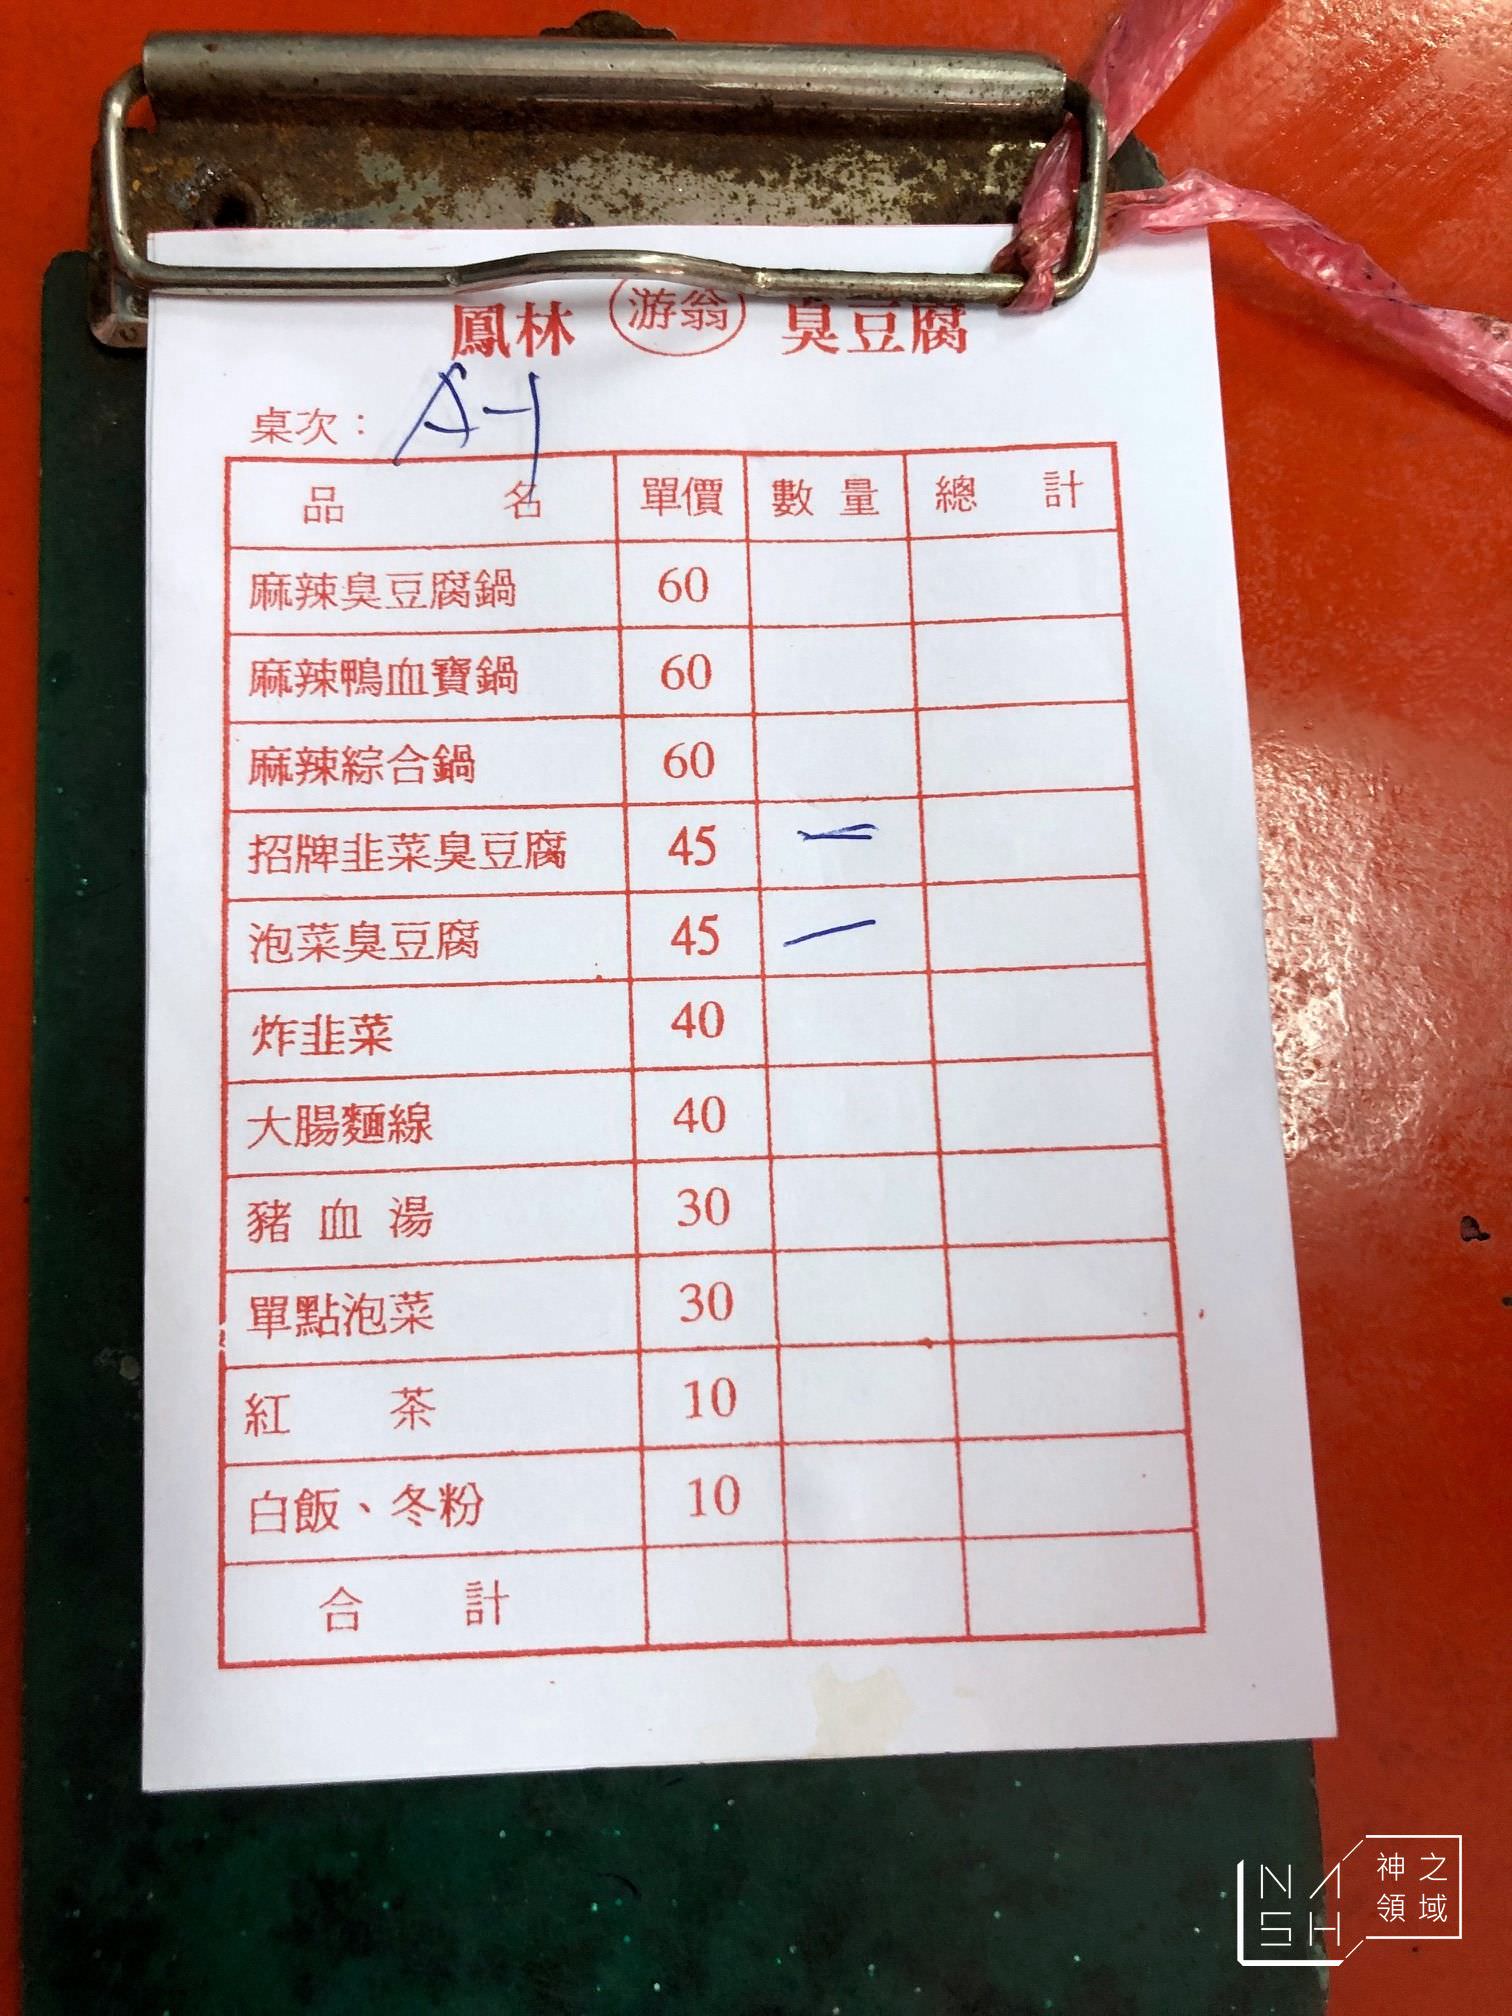 鳳林 游翁 臭豆腐
桌次：A4
品名 單價 數量 總計
麻辣臭豆腐鍋 60
麻辣鴨血寶鍋 60
麻辣綜合鍋 60
招牌韭菜臭豆腐 45 一
泡菜臭豆腐 45 一
炸韭菜 40
大腸麵線 40
豬血湯 30
單點泡菜 30
紅茶 10
白飯、冬粉 10
合計
NASH 神之領域